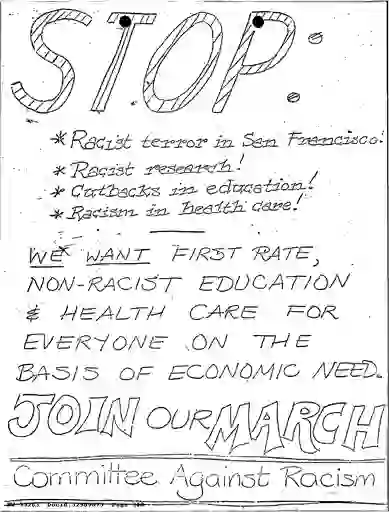 STOP:
* Racist terror in San Francisco!
* Racist research!
* Cutbacks in education!
* Racism in health care!
WE WANT FIRST RATE,
NON-RACIST EDUCATION
& HEALTH CARE FOR
EVERYONE ON THE
BASIS OF ECONOMIC NEED.
JOIN OUR MARCH
Committee Against Racism